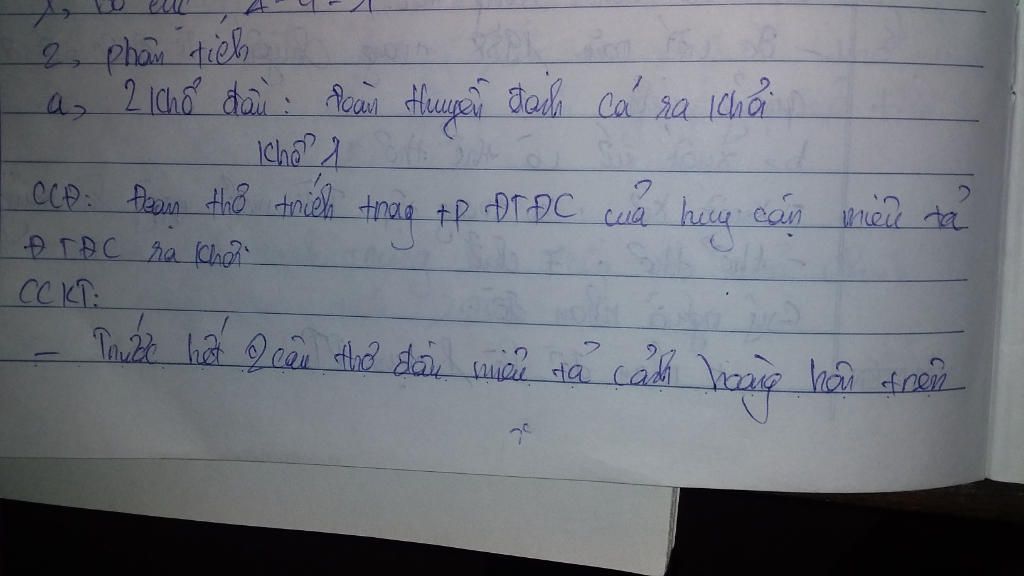 2, phân tích
a, 2 khổ đầu: Đoàn thuyền đánh cá ra khơi
khổ 1
CCĐ: Đoạn thơ trích trog tp ĐTĐC của huy cận miêu tả
ĐTĐC ra khơi.
CCKT:
- Trước hết 2 câu thơ đầu miêu tả cảnh hoàng hôn trên